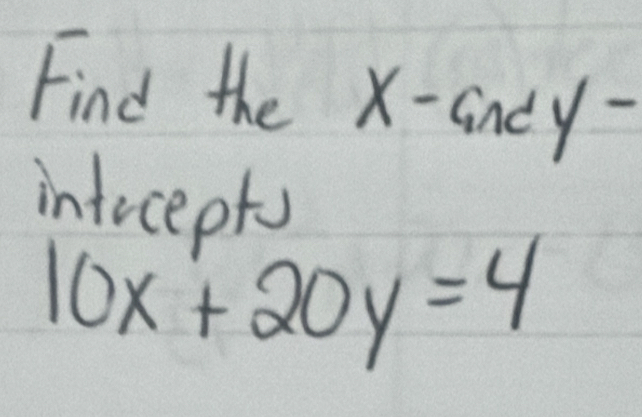 Find the x-and y-
intercepts
10x + 20y = 4